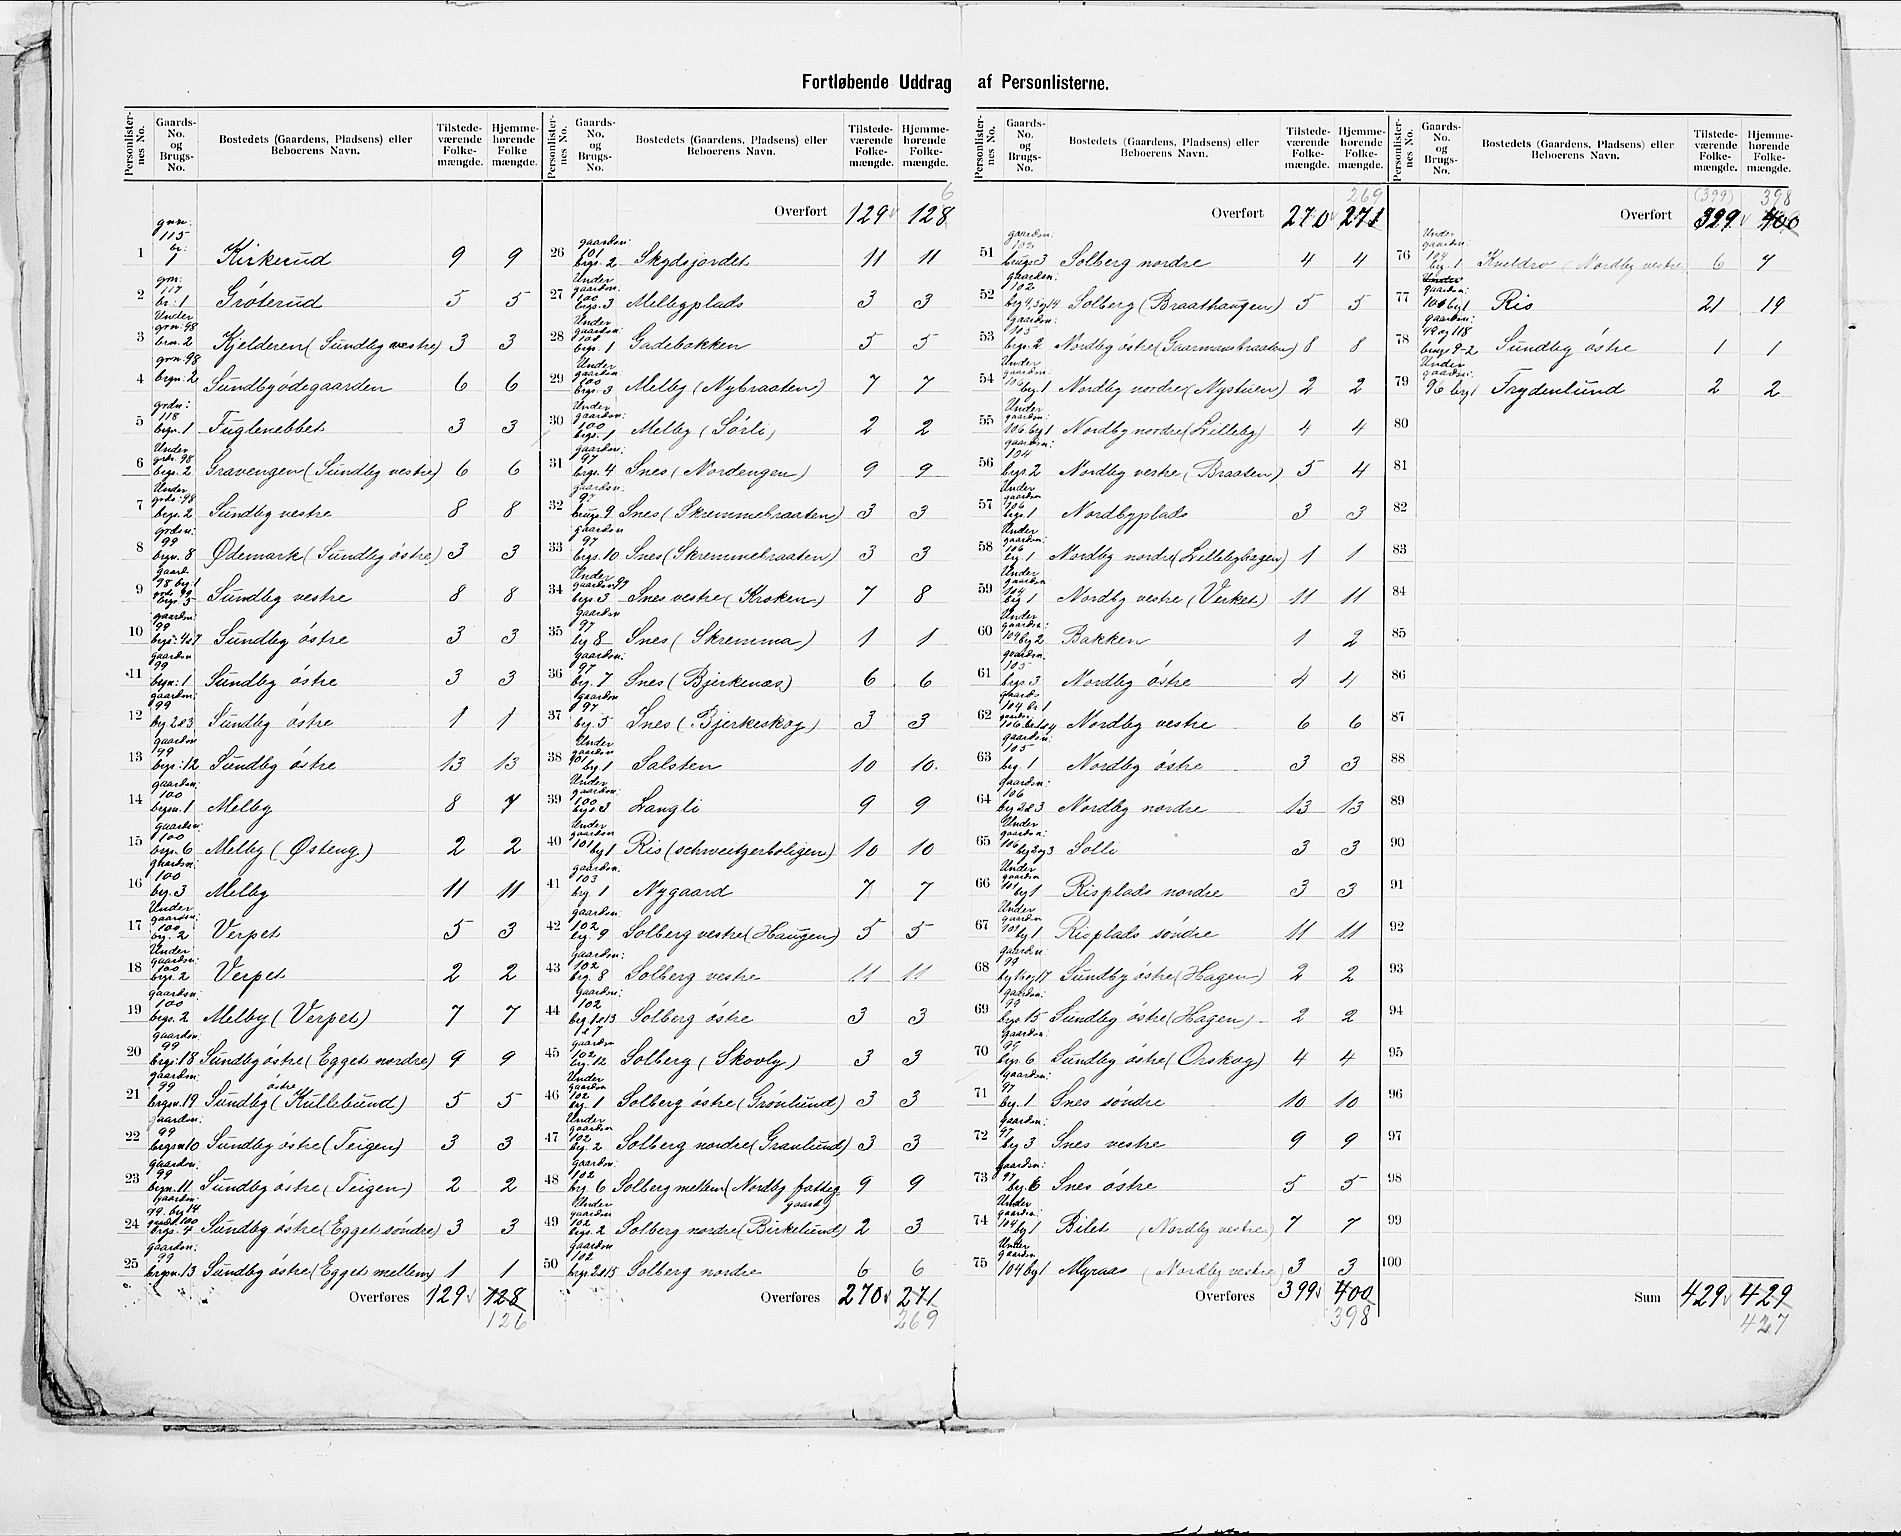 Fortløbende Uddrag af Personlisterne.
Personlister-nes No. | Gaards-No. og Brugs-No. | Bostedets (Gaardens, Pladsens) eller Beboerens Navn. | Tilstede-værende Folke-mængde. | Hjemme-hørende Folke mængde.
1 gnr. 115 br: 1 Kirkerud 9 9
2 grn: 117 br: 1 Grøterud 5 5
3 Under grn: 98 brn. 2 Kjelderen (Sundby vestre) 3 3
4 grn: 98 brgn: 2 Sundbyødegaarden 6 6
5 grdn: 118 brgn. 1 Fuglenebbet 3 3
6 Under grdn. 98 brgs. 2 Gravengen (Sundby vestre) 6 6
7 Under grds: 98 brgs. 2 Sundby vestre 8 8
8 grdn: 99 brgn. 8 Ødemark (Sundby østre) 3 3
9 gaard. 98 brg. 1 grds 99 brgs. 5 Sundby vestre 8 8
10 gaardsn: 99 brgs: 4&7 Sundby østre 3 3
11 gaardsn 99 brgn: 1 Sundby østre 3 3
12 gaardsn: 99 brg 2&3 Sundby østre 1 1
13 gaardsn 99 brgs: 12 Sundby østre 13 13
14 gaardsn: 100 brgsn. 1 Melby 8 7
15 gaardsn: 100 brgs. 6 Melby (Østeng) 2 2
16 gaardsn: 100 brg. 3 Melby 11 11
17 Under gaardsn: 100 brg. 2 Verpet 5 3
18 Under gaardsn: 100 brgs. 2 Verpet 2 2
19 gaardsn: 100 brgs. 2 Melby (Verpet) 7 7
20 gaardsn: 99 brgs: 18 Sundby østre (Egget nordre) 9 9
21 gaardsn: 99 brgsn. 19 Sundby østre (Kullebund) 5 5
22 gaardsn: 99 brgsn 10 Sundby østre (Teigen) 3 3
23 gaardsn: 99 brgn. 11 Sundby østre (Teigen) 2 2
24 gaardsn: 99. brg 14 gaard. 100 brgs. 4 Sundby østre (Egget søndre) 3 3
25 gaardsn: 99 brgsn. 13 Sundby østre (Egget mellem) 1 1
Overføres 129 128
126
Personlister-nes No. | Gaards-No. og Brugs-No. | Bostedets (Gaardens, Pladsens) eller Beboerens Navn. | Tilstede-værende Folke-mængde. | Hjemme-hørende Folke-mængde.
6
Overført 129 128
26 gaardsn: 101 brgs. 2 Skydsjordet 11 11
27 Under gaardsn: 100 brgs. 3 Melbyplads 3 3
28 Under gaardsn: 100 brgs. 1 Gadebakken 5 5
29 Under gaardsn: 100 brgs. 3 Melby (Nybraaten) 7 7
30 Under gaardsn: 100 brgs. 1 Melby (Sørli) 2 2
31 gaardsn: 97 brgs. 4 Snes (Nordengen) 9 9
32 gaardsn. 97 brugs. 9 Snes (Skremmebraaten) 3 3
33 gaardsn 97 brgs. 10 Snes (Skremmebraaten) 3 3
34 Under gaardsn 97 brgs. 3 Snes vestre (Kroken) 7 8
35 gaardsn 97 brg 8 Snes (Skremma) 1 1
36 gaardsn: 97 brg. 7 Snes (Bjerkenæs) 6 6
37 gaardsn 97 brg. 5 Snes (Bjerkeskog) 3 3
38 Under gaardsn 101 brg 1 Salsten 10 10.
39 Under gaardsn: 100 brgs. 3 Langli 9 9
40 Under gaardsn 101 brg 1 Ris (schweitzerboligen) 10 10
41 gaardsn. 103 brg 1 Nygaard 7 7
42 gaardsn: 102 brg. 9 Solberg vestre (Haugen) 5 5
43 gaardsn: 102 brg. 8 Solberg vestre 11 11
44 gaardsn: 102 brg 1&13 Solberg østre 3 3
45 gaardsn 102 brg 12 Solberg (Skovly) 3 3
46 Under gaardsn 102 brg. 1 Solberg østre (Grønlund) 3 3
47 Under gaardsn 102 brg. 2 Solberg nordre (Granlund) 3 3
48 gaardsn: 102 brg 6 Solberg mellem (Nordby fattig gaard) 9 9
49 Under gaardsn 102 brgs. 2 Solberg nordre (Birkelund) 2 3
50 gaardsn 102 brgs 2&15 Solberg nordre 6 6
Overføres 270 271
269
Personlister-nes No. | Gaards-No. og Brugs-No. | Bostedets (Gaardens, Pladsens) eller Beboerens Navn. | Tilstede-værende Folke-mængde. | Hjemme-hørende Folke-mængde.
269
Overført 270 271
51 gaardsn: 102 brugs 3 Solberg nordre 4 4
52 gaardsn: 102 brg 4,5 og 14 Solberg (Braathaugen) 5 5
53 gaardsn: 105 brgs. 2 Nordby østre (Gaarmansbraaten) 8 8
54 Under gaardsn: 106 brg. 1 Nordby nordre (Nystuen) 2 2
55 Under gaardsn: 106 brg 1 Nordby nordre (Lilleby) 4 4
56 gaardsn: 104 brgs 2 Nordby vestre (Braaten) 5 4
57 Under gaardsn 106 brgs. 1 Nordbyplads 3 3
58 Under gaardsn: 106 brg 1 Nordby nordre (Lillebyhagen) 1 1
59 Under gaardsn: 104 brg 1 Nordby vestre (Verket) 11 11
60 Under gaardsn: 104 brg 2 Bakken 1 2
61 gaardsn. 105 brgs 3 Nordby østre 4 4
62 gaards 104 br 1 gaards 106 br 1 og 4 Nordby vestre 6 6
63 gaardsn: 105 brg. 1 Nordby østre 3 3
64 gaardsn: 106 brg 2&3 Nordby nordre 13 13
65 Under gaardsn: 106 brg 2 og 3 Solli 3 3
66 Under gaardsn 101 brg 1 Risplads nordre 3 3
67 Under gaardsn 101 brg 1 Risplads søndre 11 11
68 gaardsn: 99 brg 16 og 17 Sundby østre (Hagen) 2 2
69 gaardsn: 99 brgs. 15 Sundby østre (Hagen) 2 2
70 gaardsn: 99 brgs. 6 Sundby østre (Orskog) 4 4
71 gaardsn: 97 brg. 1 Snes søndre 10 10
72 gaardsn: 97 brg 3 Snes vestre 9 9
73 gaardsn: 97 brg. 6 Snes østre 5 5
74 Under gaardsn: 104 brg 1 Bilet (Nordby vestre) 7 7
75 Under gaardsn 104 brg 1 Myraas (Nordby vestre) 3 3
Overføres 399 400
398
Personlister-nes No. | Gaards-No. og Brugs-No. | Bostedets (Gaardens, Pladsens) eller Beboerens Navn. | Tilstede-værende Folke-mængde. | Hjemme-hørende Folke-mængde.
(399) 398
Overført 399 400
76 Under gaardsn: 104 brg. 1 Kveldro (Nordby vestre 6 7
77 Under gaardsn: 101 brg 1 Ris 21 19
78 gaardsn: 49 og 118 brugs 9-2 Sundby østre 1 1
79 Under gaardsn: 96 brg 1 Frydenlund 2 2
80
81
82
83
84
85
86
87
88
89
90
91
92
93
94
95
96
97
98
99
100
Sum 429 429
427